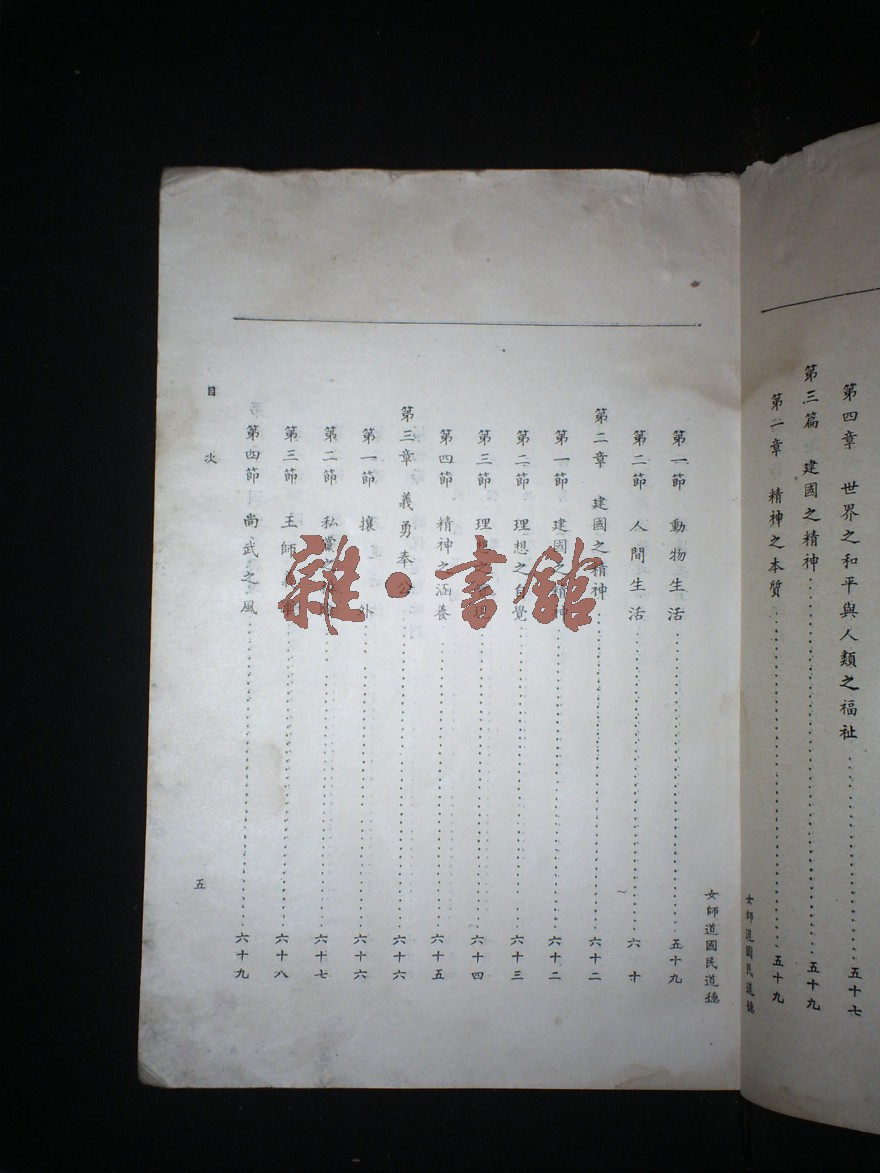 第四章 世界之和平與人類之福祉……五十七
第三篇 建國之精神……五十九
第一章 精神之本質……五十九
女師道國民道德
女師道國民道德
第一節 動物生活……五十九
第二節 人間生活……六十
第二章 建國之精神……六十二
第一節 建國……六十二
第二節 理想之自覺……六十三
第三節 理想之……六十四
第四節 精神之涵養……六十五
第三章 義勇奉公……六十六
第一節 攘外……六十六
第二節 私黨之……六十七
第三節 王師……六十八
第四節 尚武之風……六十九
目次
五
雜·書館